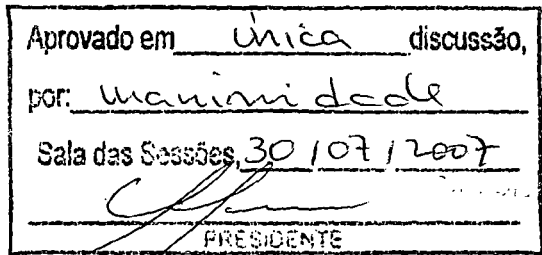 Aprovado em única discussão,
por: unanimidade
Sala das Sessões, 30 / 07 / 2007
PRESIDENTE